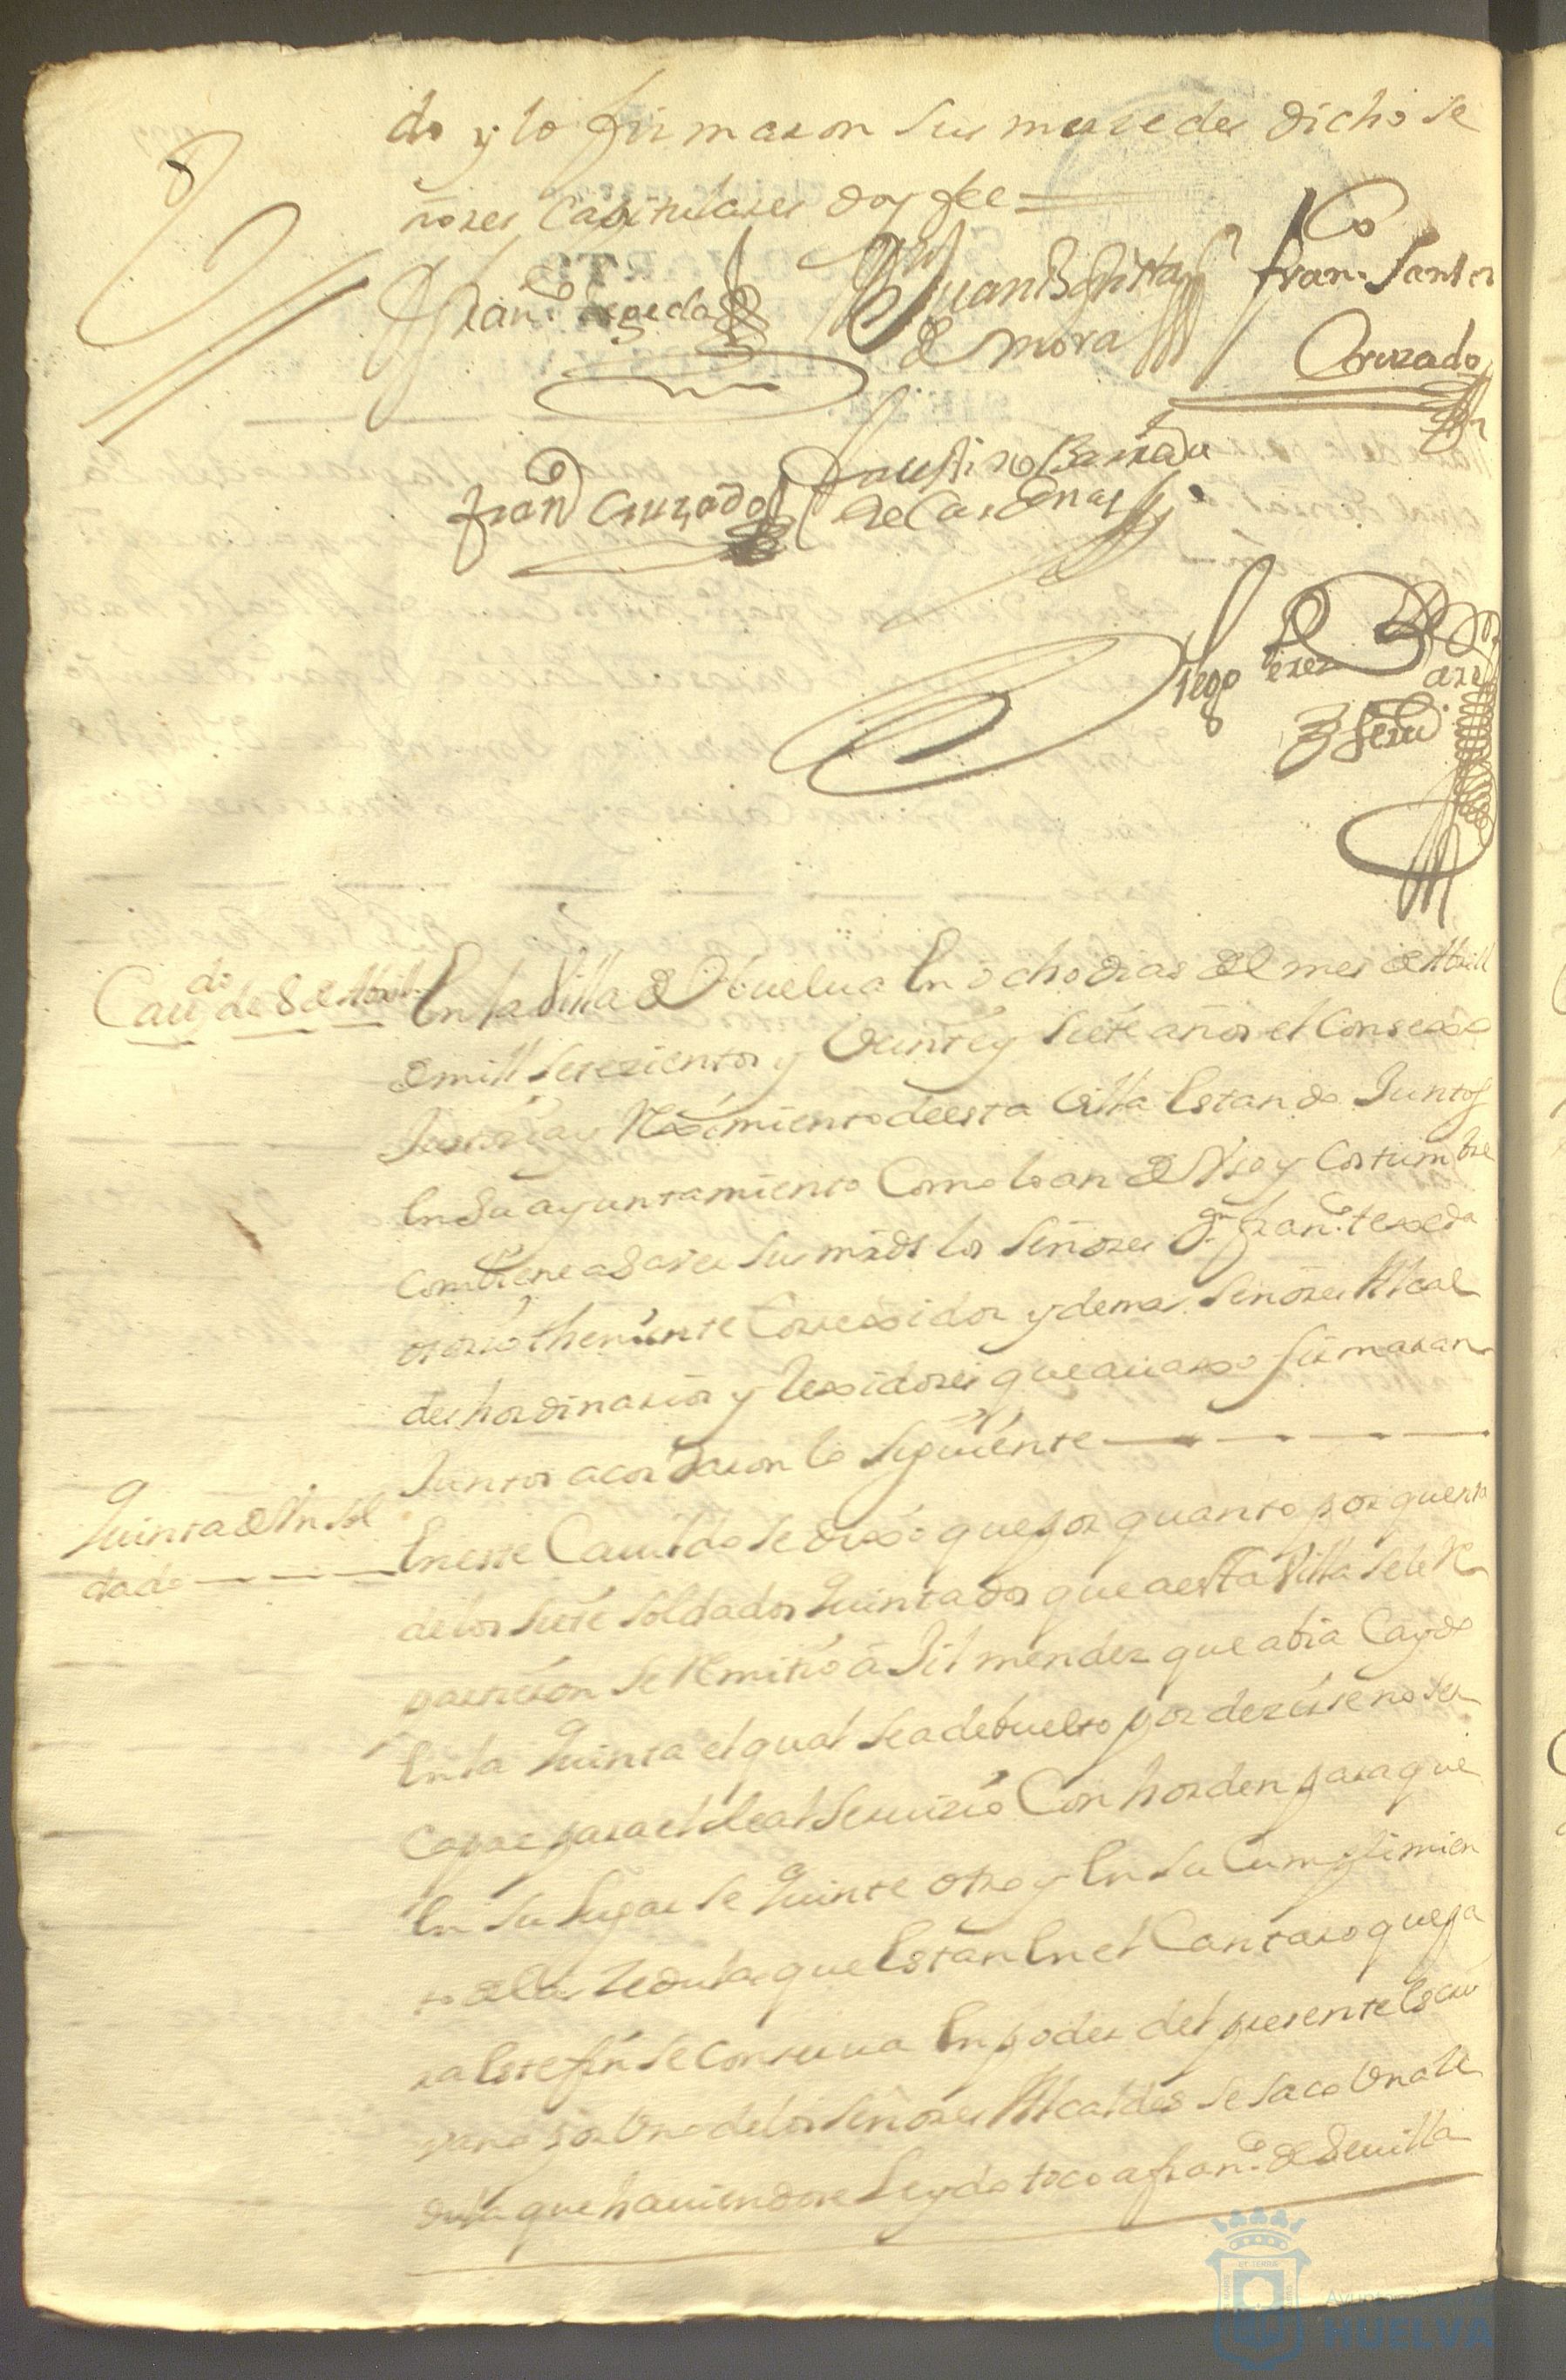 do y lo firmaron sus mersedes dichos se
ñores Capitulares doy fee =
Fran.co texeda
Juan Baptista
de mora
fran.co Santos
Cruzado
fran.co Cruzado
faustino Barrada
de Cardenas
Diego Perez
Cau.do de 8 de Abrill
En la Villa de Huelua En ocho dias del mes de Abrill
de mill setezientos y Veinte y siete años el Consexo
Justizia y Reximiento de esta Villa Estando Juntos
En su ayuntamiento Como lo an de Vso y Costumbre
combiene a Saver sus mrds los Señores Dn fran.co texeda
osorio theniente Correxidor y demas Señores Alcal
des hordinarios y rexidores que auaxo firmaran
Juntos acordaron lo siguiente
Quinta de Vn Sol
dado
En este Cauildo se dixo que por quanto por quenta
de los siete soldados Quintados que a esta Villa se le Re
partieron se Remitio a Jil mendez que abia Caydo
En la Quinta el qual se a debuelto por dezirse no ser
Capaz para el Real Seruizio Con horden para que
En su lugar se Quinte otro y En su Cumplimien
to de las zedulas que Estan En el Cantaro que pa
ra Este fin se conserua En poder del presente Escriv
vano por Vno de los Señores Alcaldes se saco Vna ze
dula que hauiendose Leydo toco a fran.co de Seuilla
Ayuntamiento
HUELVA